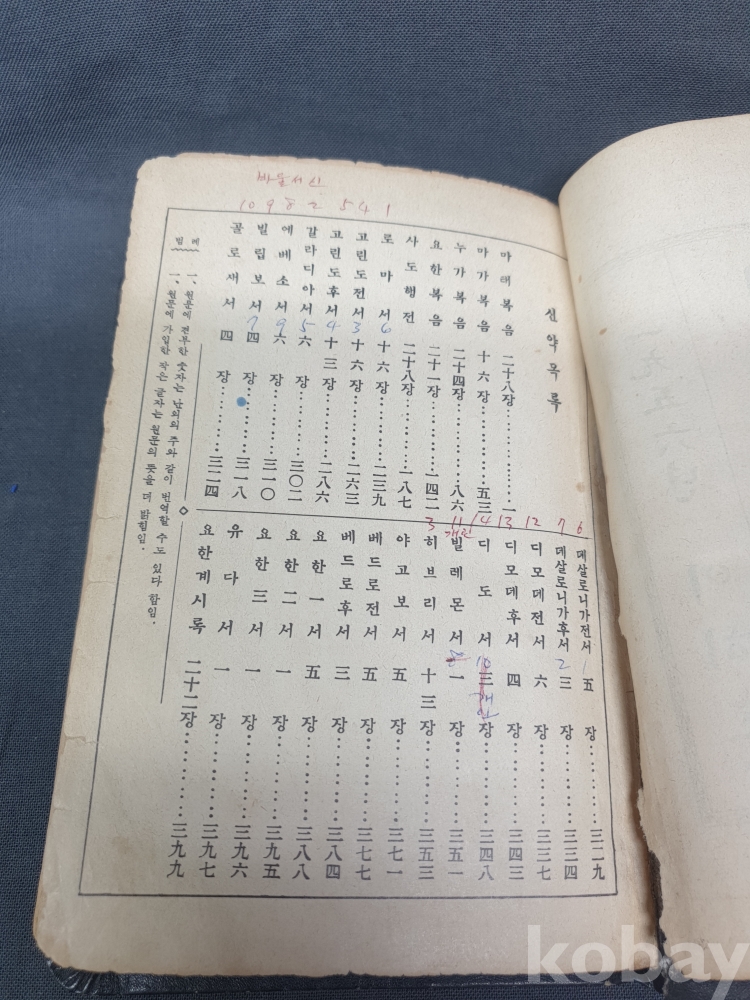 바울서신
10 9 8 2 5 4 1
신약목록
마태복음 二十八장··········一
마가복음 十六장··········五三
누가복음 二十四장··········八六
요한복음 二十一장··········一四二
사도행전 二十八장··········一八七
로마서 6 十六장··········二三九
고린도전서 3 十六장··········二六三
고린도후서 4 十三장··········二八六
갈라디아서 5 六장··········三〇二
에베소서 9 六장··········三一〇
빌립보서 7 四장··········三一八
골로새서 四장··········三二四
6 데살로니가전서 1 五장··········三二九
7 데살로니가후서 2 三장··········三三四
12 디모데전서 六장··········三三七
13 디모데후서 四장··········三四三
14 디도서 10 三장··········三四八
11 개인 빌레몬서 一장··········三五一
3 히브리서 十三장··········三五三
야고보서 五장··········三七一
베드로전서 五장··········三七七
베드로후서 三장··········三八四
요한一서 五장··········三八八
요한二서 一장··········三九五
요한三서 一장··········三九六
유다서 一장··········三九七
요한계시록 二十二장··········三九九
범례
一、원문에 전부한 숫자는 난외의 주와 같이 번역할 수도 있다 함임.
一、원문에 가입한 작은 글자는 원문의 뜻을 더 밝힘임.
kobay